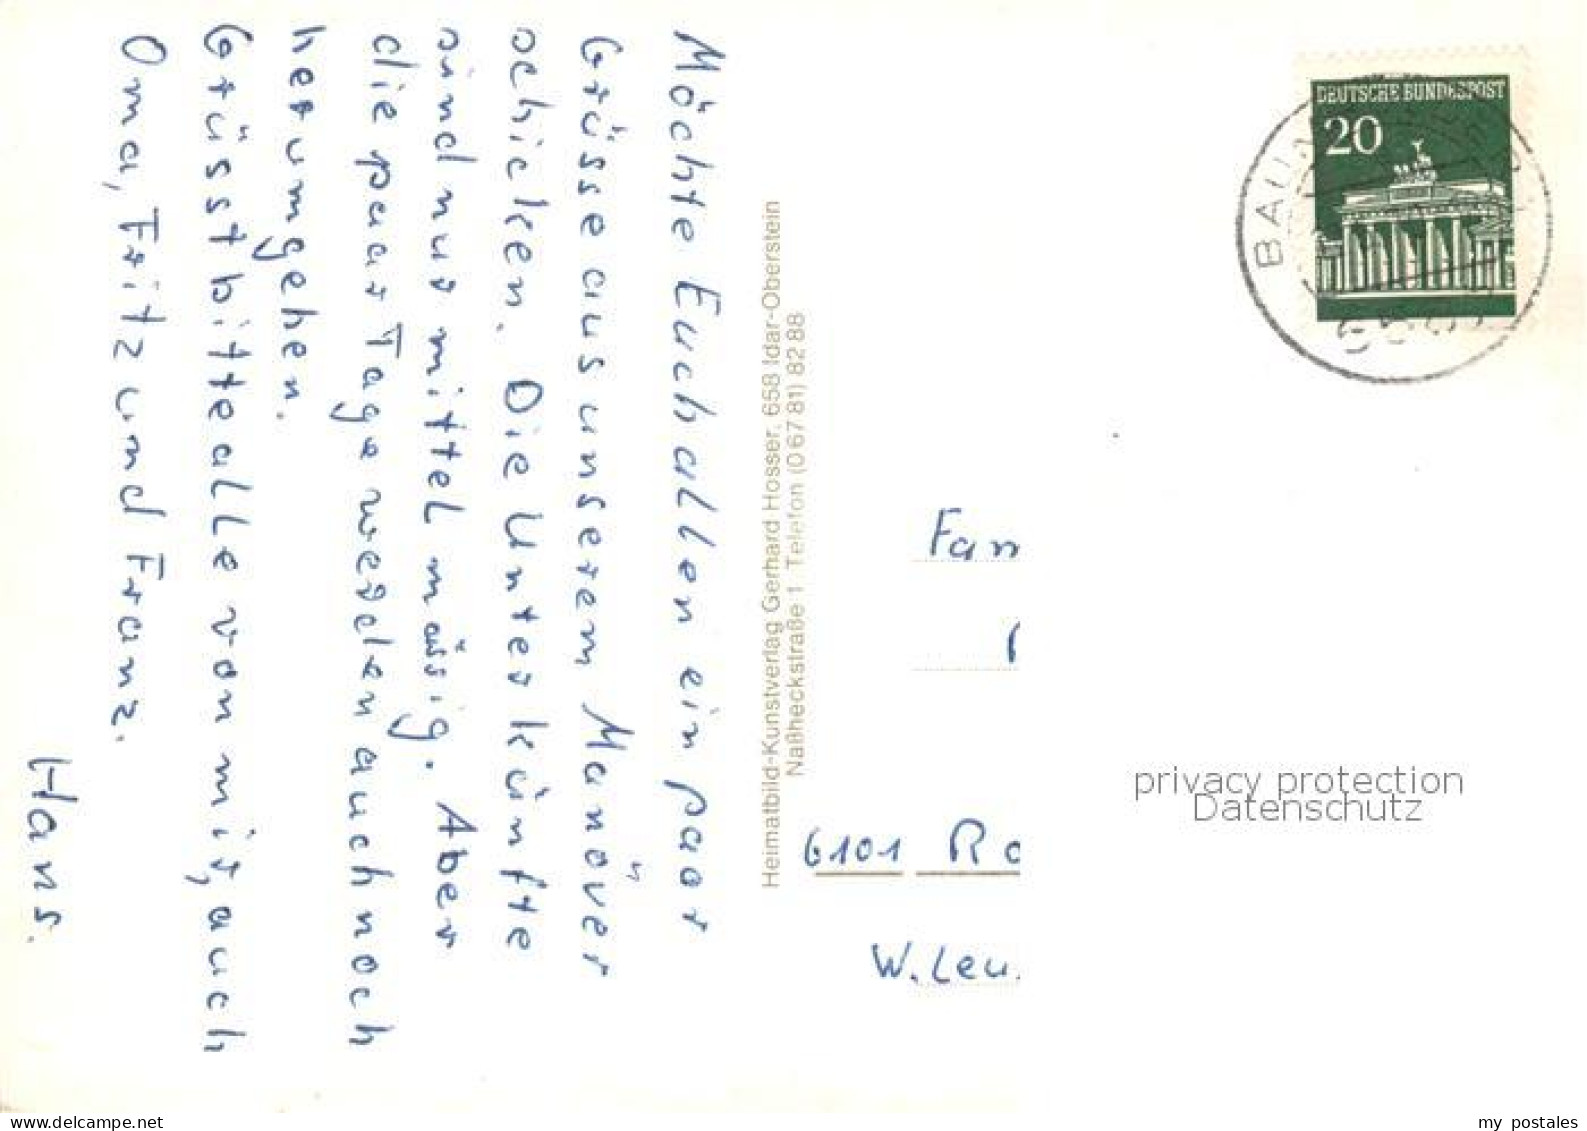 Möchte Euch allen ein paar
Grüsse aus unserem Manöver
schicken. Die Unterkünfte
sind nur mittelmässig. Aber
die paar Tage werden auch noch
herumgehen.
Grüsst bitte alle von mir, auch
Oma, Fritz und Franz.
Hans.
Heimatbild-Kunstverlag Gerhard Hosser, 658 Idar-Oberstein
Naßheckstraße 1 Telefon (0 67 81) 82 88
DEUTSCHE BUNDESPOST
20
Fam
6101 Ro
W. Leu.
privacy protection
Datenschutz
www.delcampe.net
my postales